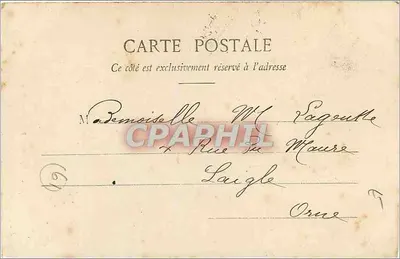 CARTE POSTALE
Ce côté est exclusivement réservé à l'adresse
Mademoiselle M
CPAPHIL.com
Rue du Maure
Laigle
Orne
(61)